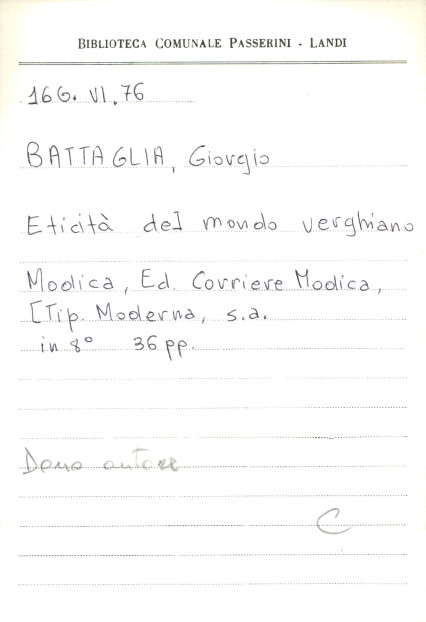 BIBLIOTECA COMUNALE PASSERINI - LANDI
16G. VI. 76
BATTAGLIA, Giorgio
Eticità del mondo verghiano
Modica, Ed. Corriere Modica,
[Tip. Moderna, s.a.
in 8° 36 pp.
Dono autore
C